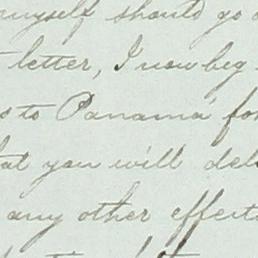 myself should go
letter, I now beg
to Panamá for
at you will del
any other effects